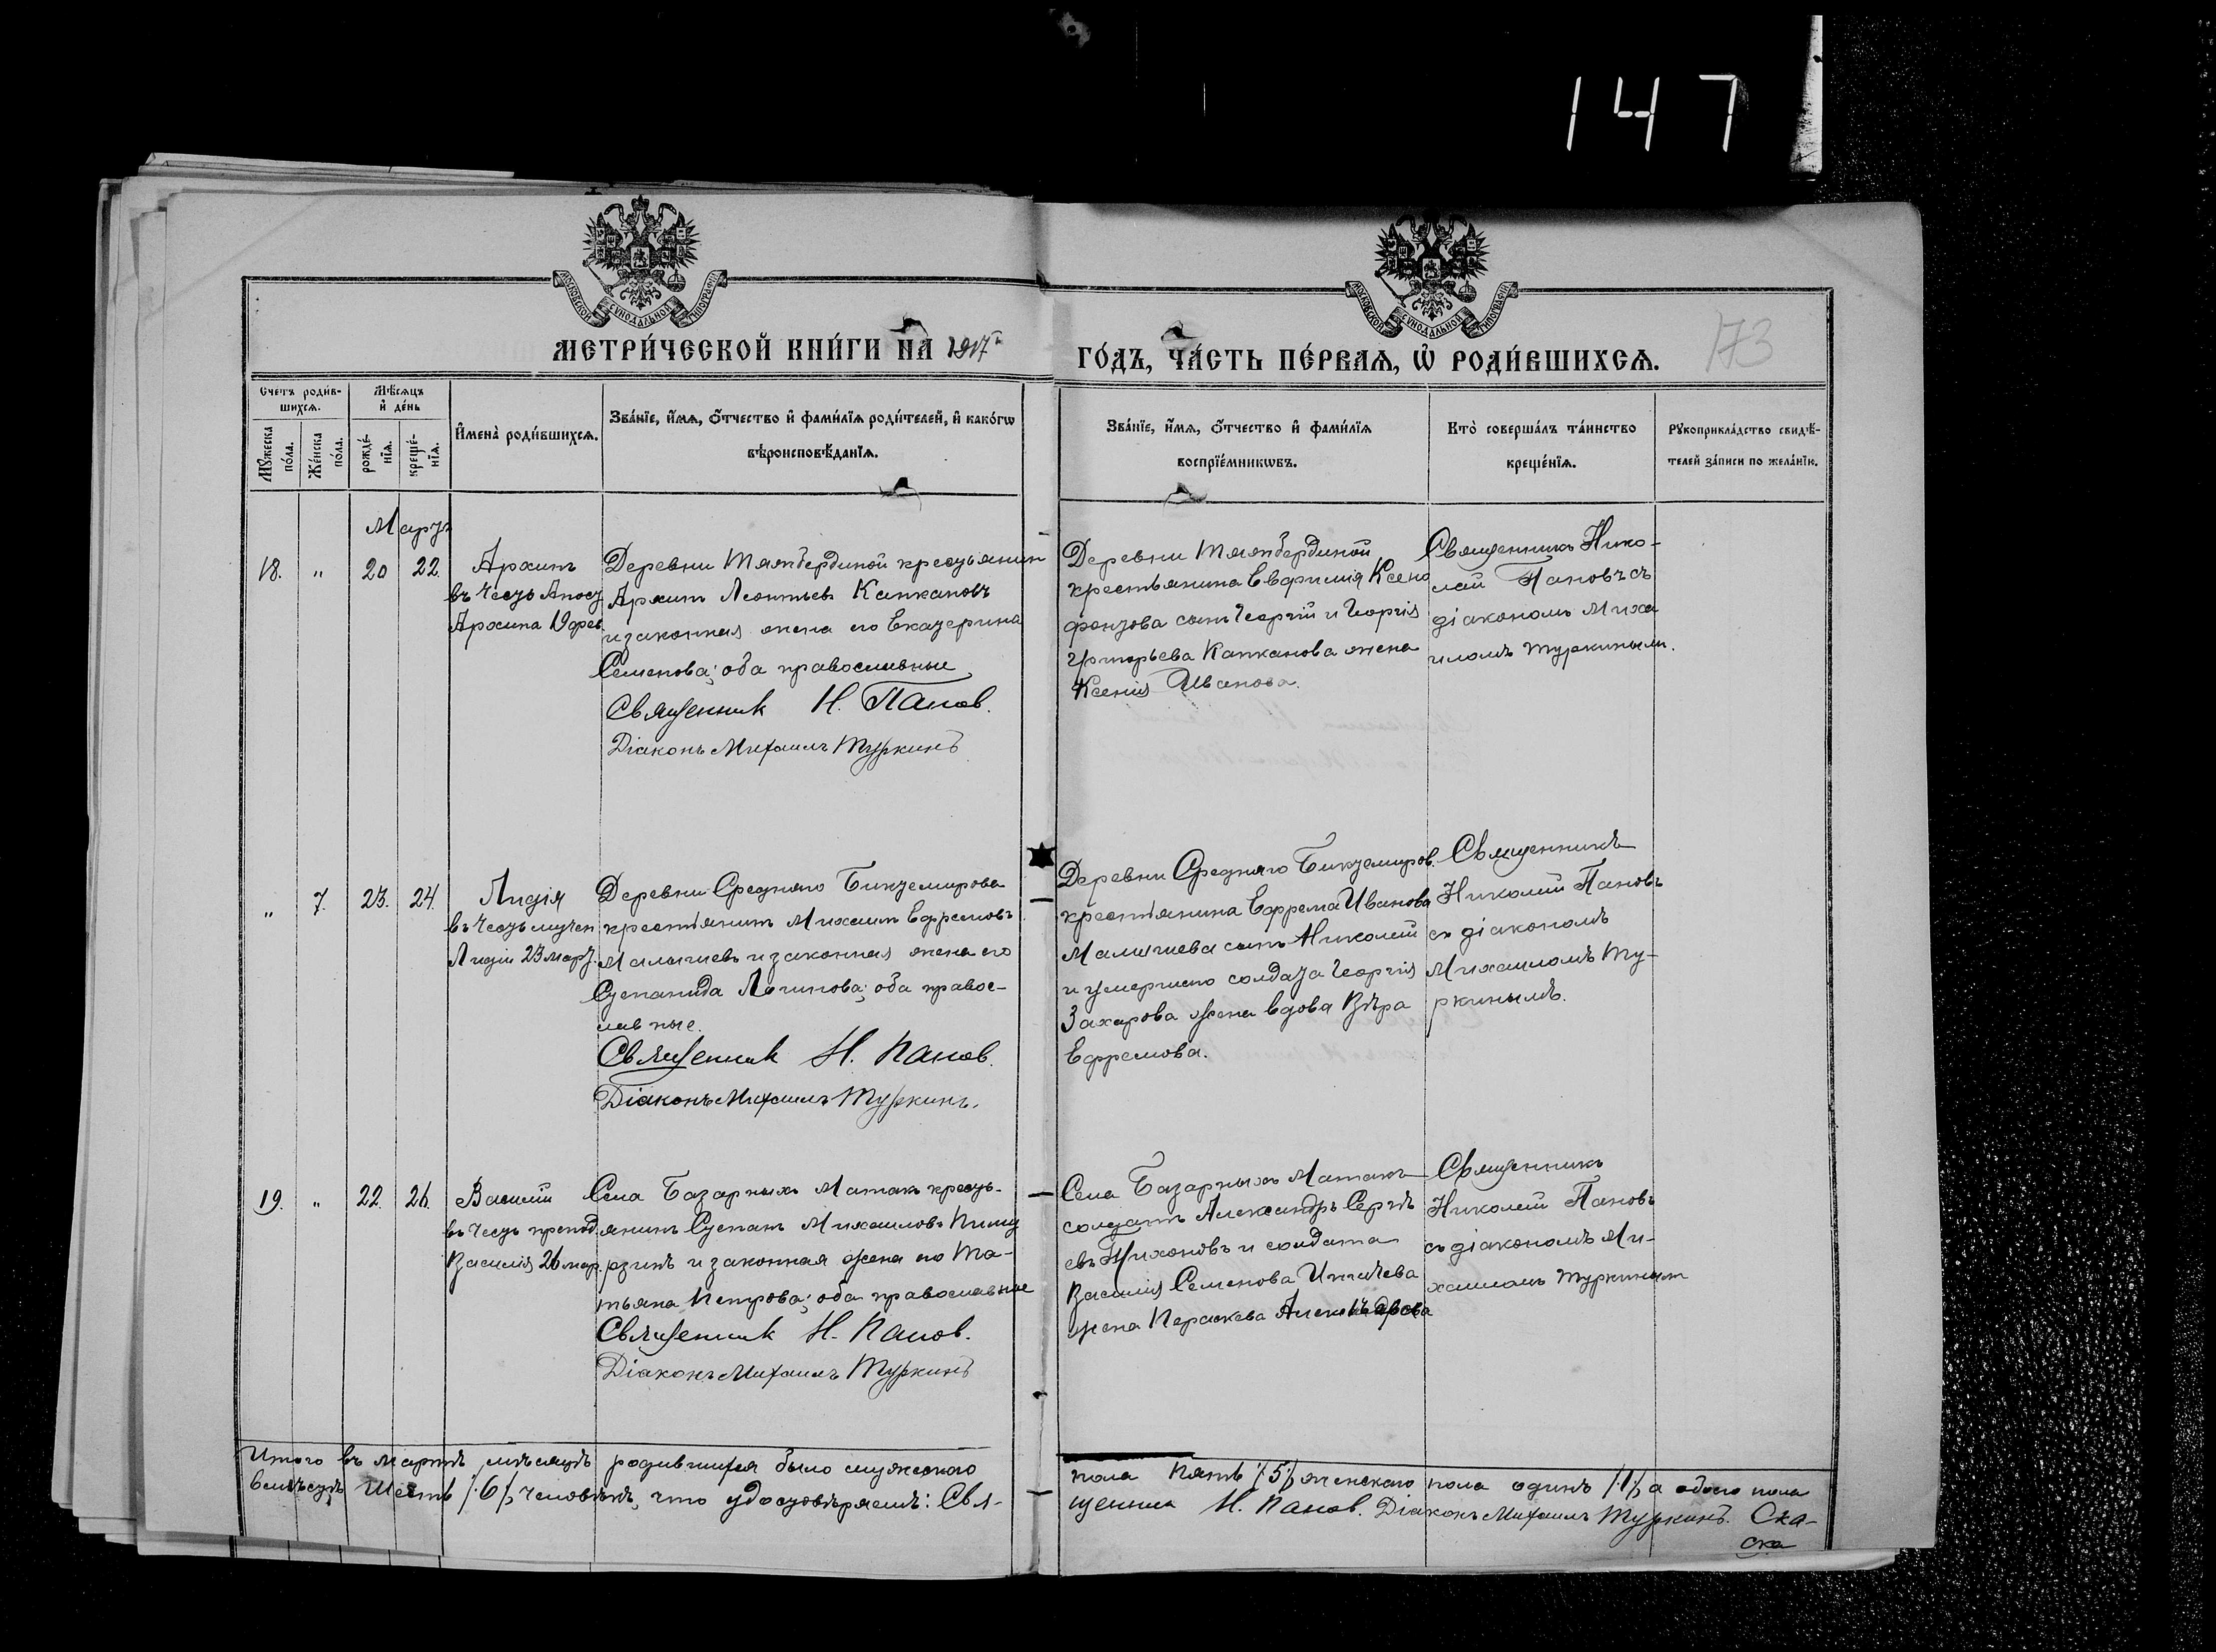 147
МОСКОВСКОЙ СУНОДАЛЬНОЙ ТИПОГРАФІИ
МОСКОВСКОЙ СУНОДАЛЬНОЙ ТИПОГРАФІИ
МЕТРИ́ЧЕСКОЙ КНИ́ГИ НА 1917
ГО́ДЪ, ЧА́СТЬ ПЕ́РВАѦ, Ѡ РОДИ́ВШИХСѦ.
173
Счетъ роди́в-
шихсѧ.
Мꙋ́жеска
по́ла.
Же́нска
по́ла.
Мѣ́сѧцъ
и҆ де́нь
рожде́-
нїѧ.
креще́-
нїѧ.
И҆мена̀ роди́вшихсѧ.
Зва́нїе, и҆́мѧ, ѻ҆́тчество и҆ фами́лїѧ роди́телей, и҆ како́гѡ
вѣроисповѣ́данїѧ.
Зва́нїе, и҆́мѧ, ѻ҆́тчество и҆ фами́лїѧ
воспрїе́мникѡвъ.
Кто̀ соверша́лъ та́инство
креще́нїѧ.
Рꙋкоприкла́дство свидѣ́-
телей за́писи по жела́нїю.
Мартъ
18. " 20 22.
Архипъ
въ честь Апост
Архипа 19 фев.
Деревни Тяжбердиной крестьянинъ
Архипъ Леонтьевъ Капкановъ
и законная жена его Екатерина
Семенова; оба православные
Священник Н. Панов.
Діаконъ Михаилъ Туркинъ
Деревни Тяжбердиной
крестьянина Евфимія Ксено
фонтова сынъ Георгій и Георгія
Григорьева Капканова жена
Ксенія Иванова.
Священникъ Нико-
лай Пановъ съ
діакономъ Миха
иломъ Туркинымъ.
" 7. 23. 24.
Лидія
въ честь мучен
Лидіи 23 март.
Деревни Средняго Биктемирова
крестьянинъ Михаилъ Ефремовъ
Малышевъ и законная жена его
Степанида Логинова; оба правос-
лавные.
Священник Н. Панов.
Діаконъ Михаилъ Туркинъ.
Деревни Средняго Биктемиров.
крестьянина Ефрема Иванова
Малышева сынъ Николай
и умершаго солдата Георгія
Захарова жена вдова Вѣра
Ефремова.
Священникъ
Николай Пановъ
съ діакономъ
Михаиломъ Ту-
ркинымъ.
19. " 22. 26.
Василій
въ честь препод.
Василія 26 мар.
Села Базарныхъ Матакъ кресть-
янинъ Степанъ Михаиловъ
и законная жена его Та-
тьяна Петрова; оба православные
Священник Н. Панов.
Діаконъ Михаилъ Туркинъ
Села Базарныхъ Матакъ
солдатъ Александръ Сергѣ
евъ Тихоновъ и солдата
Василія Семенова
жена Параскева Александрова
Священникъ
Николай Пановъ
съ діакономъ Ми-
хаиломъ Туркинымъ
Итого въ мартѣ мѣсяцѣ родившихся было мужескаго
пола пять /5/, женскаго пола одинъ /1/, а обоего пола
вмѣстѣ шесть /6/, человѣкъ, что удостовѣряемъ: Свя-
щенник Н. Панов. Діаконъ Михаилъ Туркинъ.